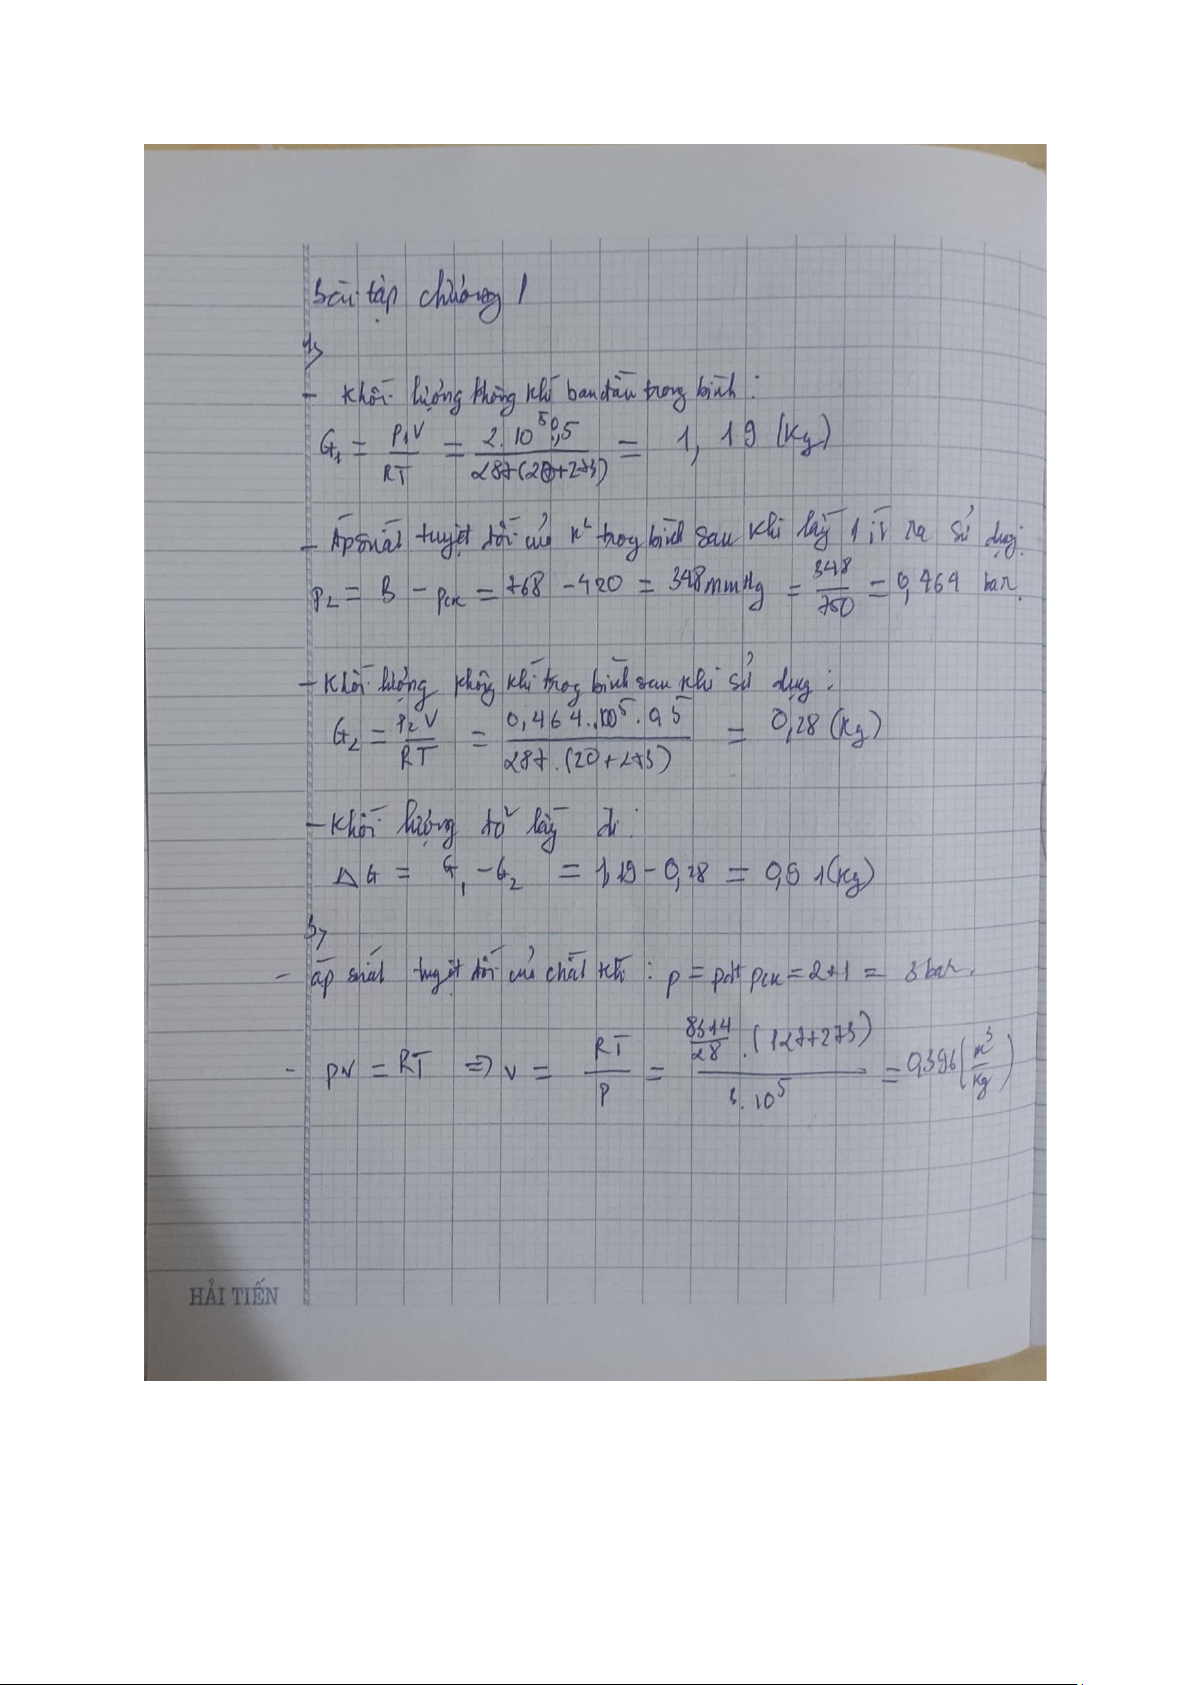 Bài tập chương 1
1,
- Khối lượng không khí ban đầu trong bình:
G₁ = P₁V / RT = 2.10⁵.0,5 / 287(20+273) = 1,19 (Kg)
- Áp suất tuyệt đối của k² trong bình sau khi lấy 1 ít ra sử dụng.
P₂ = B - pck = 768 - 420 = 348mmHg = 348 / 750 = 0,464 bar.
- Khối lượng không khí trong bình sau khi sử dụng:
G₂ = P₂V / RT = 0,464.10⁵.0,5 / 287.(20+273) = 0,28 (Kg)
- Khối lượng đã lấy đi:
ΔG = G₁ - G₂ = 1,19 - 0,28 = 0,91 (Kg)
3,
- áp suất tuyệt đối của chất khí: p = pd+ pck = 2+1 = 3 bar.
- pv = RT ⇒ v = RT / P = 8314/28 . (127+273) / 3.10⁵ = 0,396 (m³/kg)
HẢI TIẾN